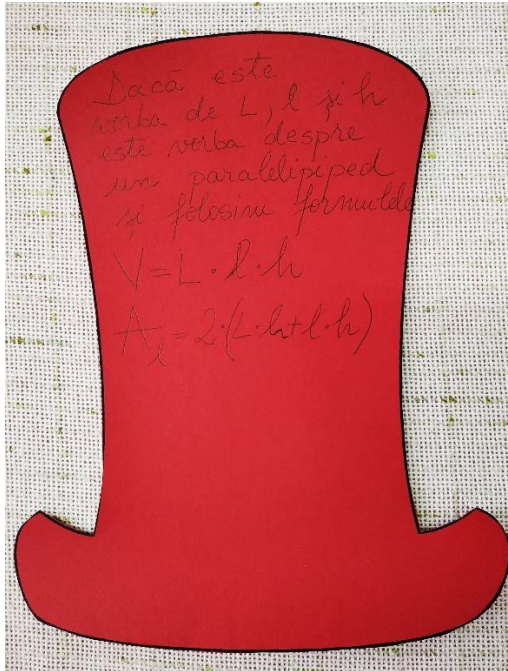 Dacă este
vorba de L, l și h
este vorba despre
un paralelipiped
și folosim formulele
V = L · l · h
Aₗ = 2·(L·h+l·h)